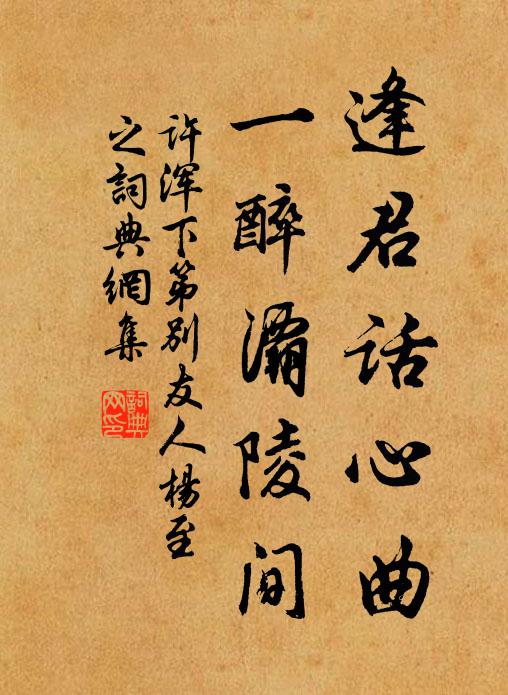 逢君话心曲
一醉灞陵间
许浑下第别友人杨至
之词典網集
词典
网印